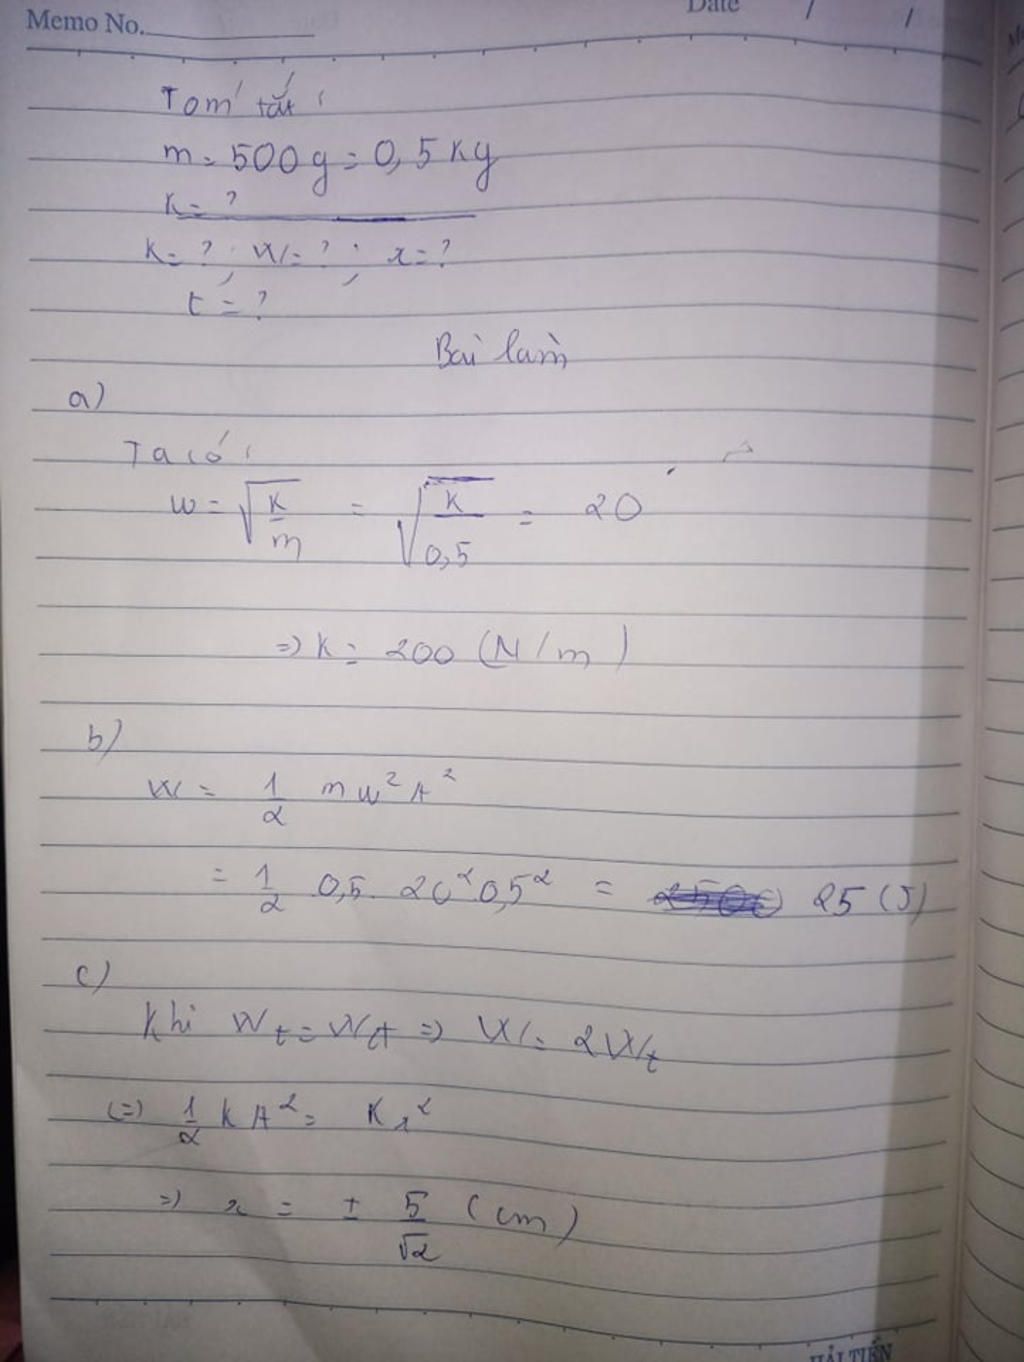 Memo No.
Date / /
Tóm tắt :
m = 500g = 0,5 kg
K = ?
K = ? ; W = ? ; x = ?
t = ?
Bài làm
a)
Ta có :
ω = √(K/m) = √(K/0,5) = 20
=> K = 200 (N/m)
b)
W = 1/2 mω² A²
= 1/2 0,5. 20² 0,5² = 25 (J)
c)
Khi Wt = Wđ => W = 2Wt
(=) 1/2 K A² = K x²
=> x = ± 5/√2 (cm)
HẢI TIẾN